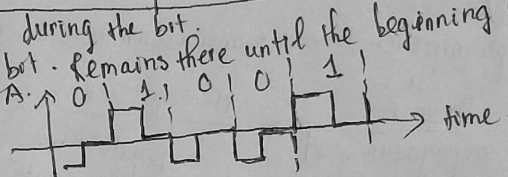 during the bit.
bit. Remains there until the beginning
A. 0 1 0 0 1
time